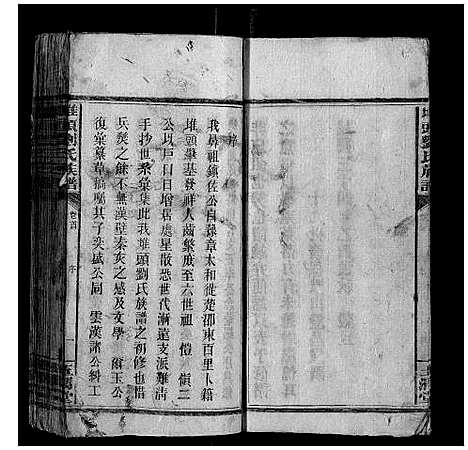 序
我鼻祖鎮佐公自豫章太和徙楚邵東百里卜籍
堆頭肇基發祥人齒繁庶至六世祖 愷 慎二
公以戶口日增居處星散恐世代漸遠支派難清
手抄世系彙集此我堆頭劉氏族譜之初修也惜
兵燹之餘不無漢壁秦灰之感及文學 爾玉公
復彙纂草稿囑其子奕盛公同 雲漢諸公糾工
堆頭劉氏族譜
卷首
序
一